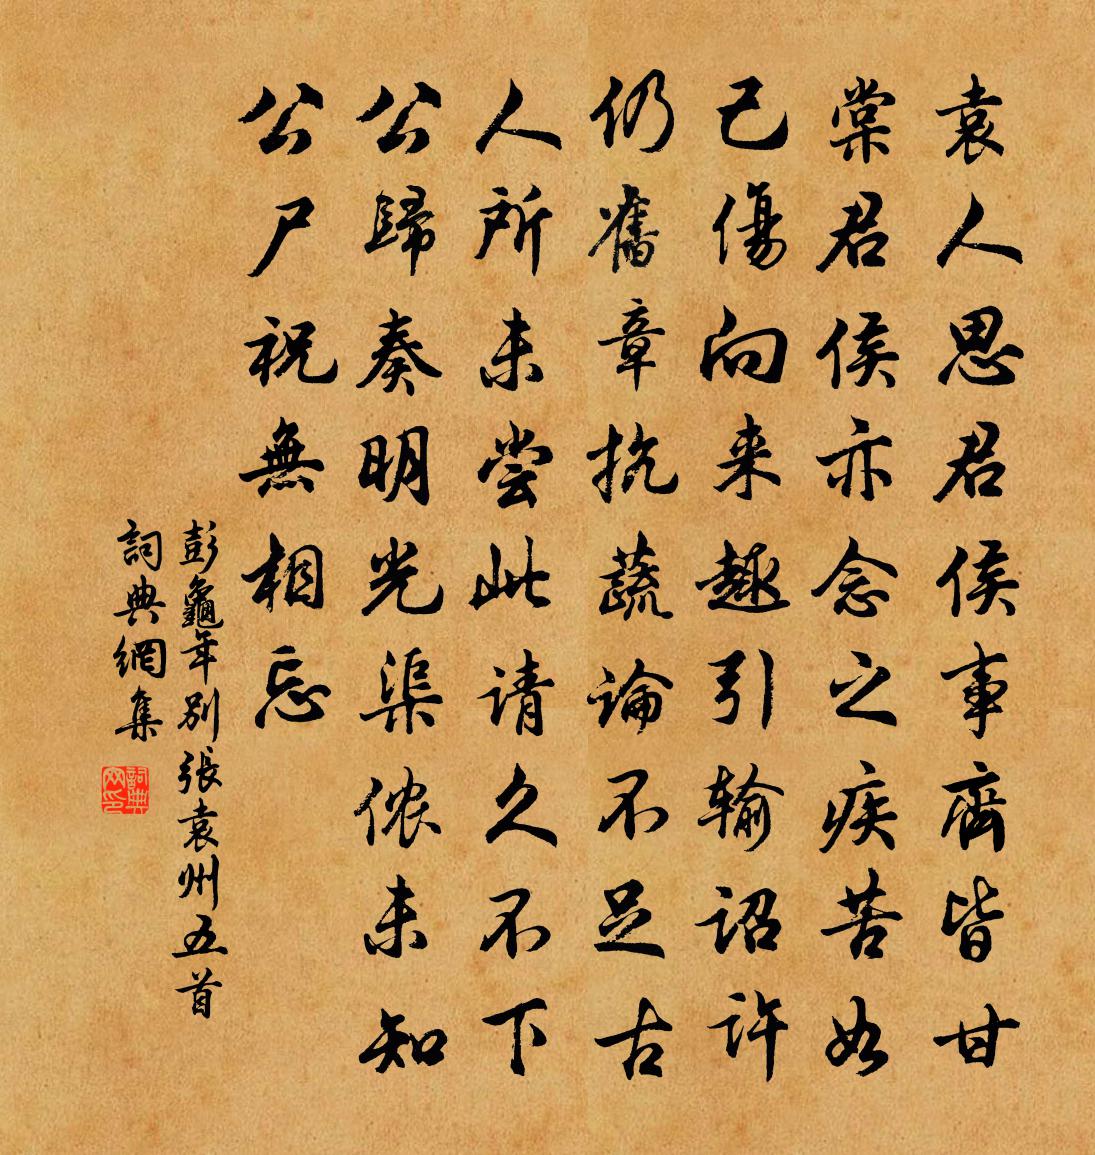 袁人思君侯事齊皆甘
棠君侯亦念之疾苦如
己傷向来趣引输詔许
仍舊章抗蔬論不足古
人所未尝此请久不下
公歸奏明光渠侬未知
公尸祝無相忘
彭龜年别張袁州五首
詞典網集
詞典网印